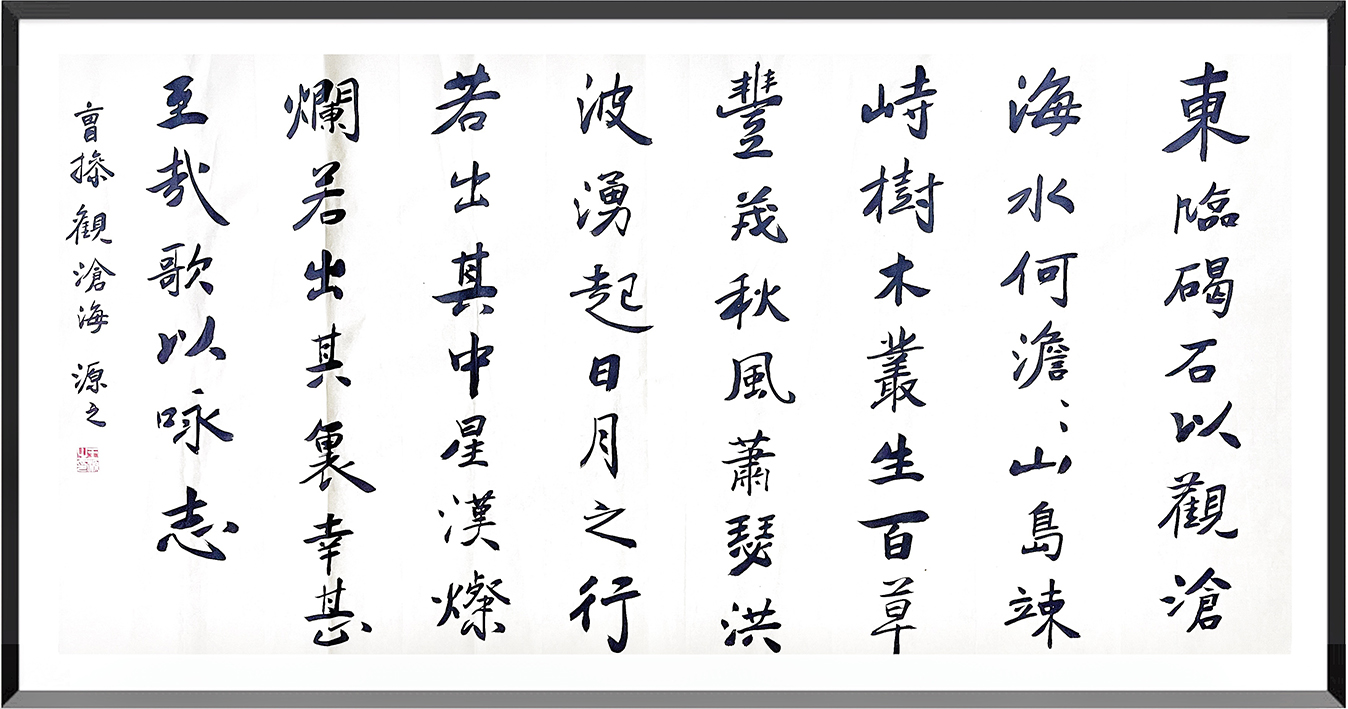 東臨碣石以觀滄
海水何澹〻山島竦
峙樹木叢生百草
豐茂秋風蕭瑟洪
波湧起日月之行
若出其中星漢燦
爛若出其裏幸甚
至哉歌以咏志
曹操觀滄海 源之